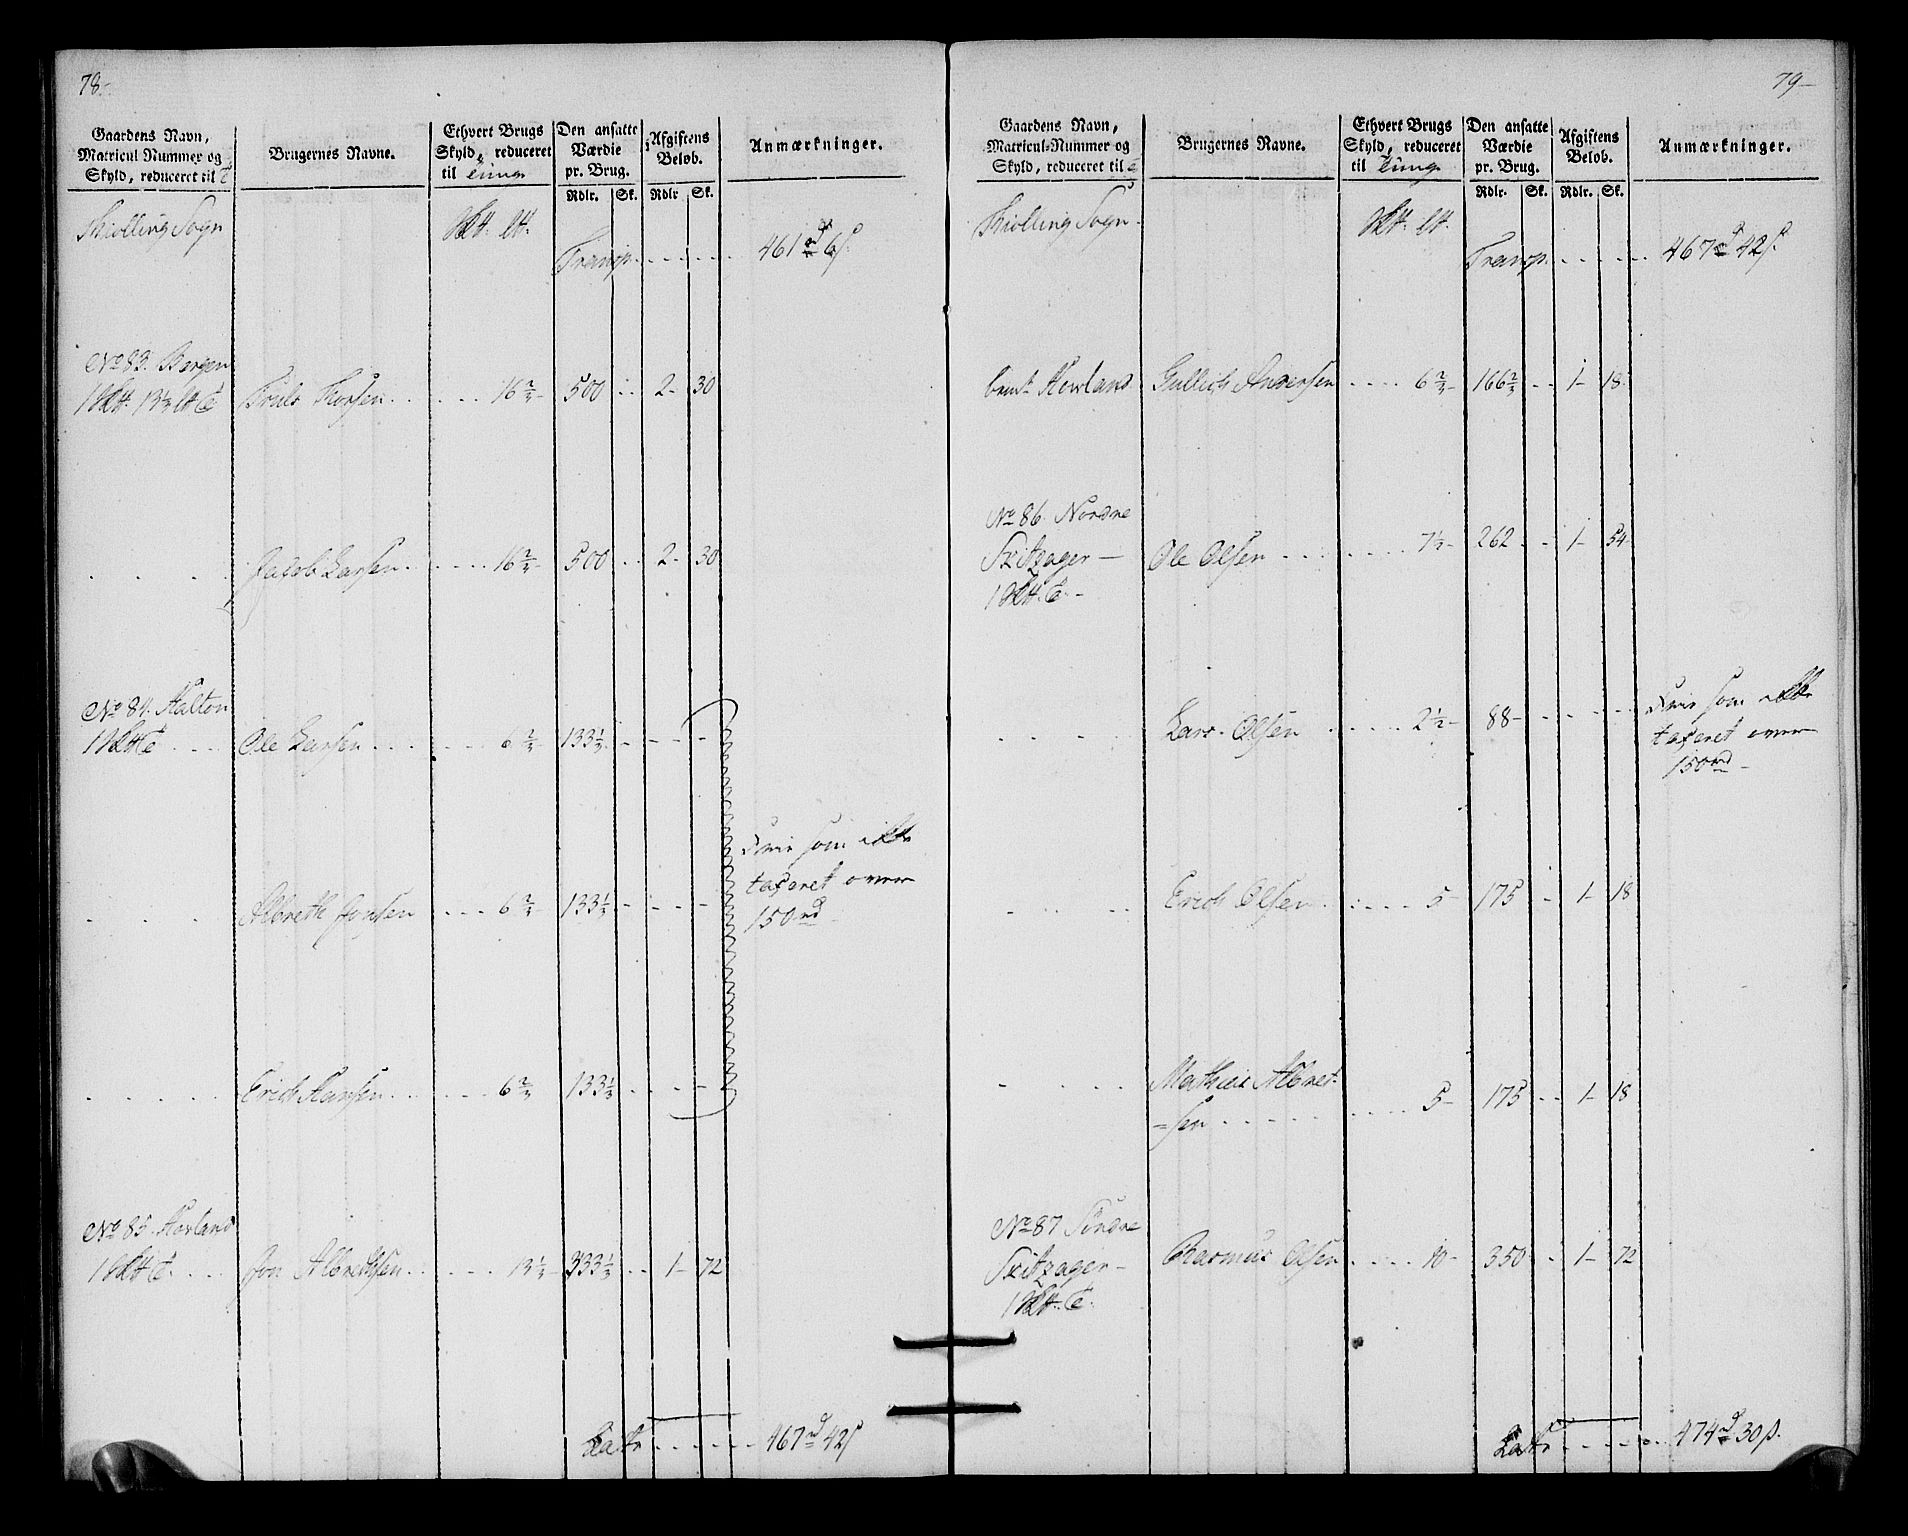 78.
Gaardens Navn,
Matricul Nummer og
Skyld, reduceret til T
Brugernes Navne.
Ethvert Brugs
Skyld, reduceret
til Tunge
Den ansatte
Værdie
pr. Brug.
Rdlr. Sk.
Afgiftens
Beløb.
Rdlr Sk.
Anmærkninger.
Thiølling Sogn
Transp. 461 rd 6 s.
No 83. Bergen
Truls Thorsen 16 2/3 500 2- 30
Jacob Larsen 16 2/3 500 2- 30
No 84. Halton
Ole Larsen 6 2/3 133 1/3
Fri som ikke
taxeret over
150 rd
Albreth Jonsen 6 2/3 133 1/3
Erich Hansen 6 2/3 133 1/3
No 85. Hovland
Jon Albrethsen 13 1/3 333 1/3 1- 72
Lats 467 rd 42 s
79
Gaardens Navn,
Matricul-Nummer og
Skyld, reduceret til
Brugernes Navne.
Ethvert Brugs
Skyld, reduceret
til Tunge
Den ansatte
Værdie
pr. Brug.
Rdlr. Sk.
Afgiftens
Beløb.
Rdlr. Sk.
Anmærkninger.
Thiølling Sogn
Transp. 467 rd 42 s
bemt Hovland Gullich Andersen 6 2/3 166 2/3 1- 18
No 86. Nordre
Fritzager Ole Olsen 7 1/2 262 1- 54
Lars Olsen 2 1/2 88
Fri som ikke
taxeret over
150 rd
Erich Olsen 5 175 1- 18
Mathias Albret-
=sen 5 175 1- 18
No 87 Søndre
Fritzager Rasmus Olsen 10 350 1- 72
Lats 474 rd 30 s.